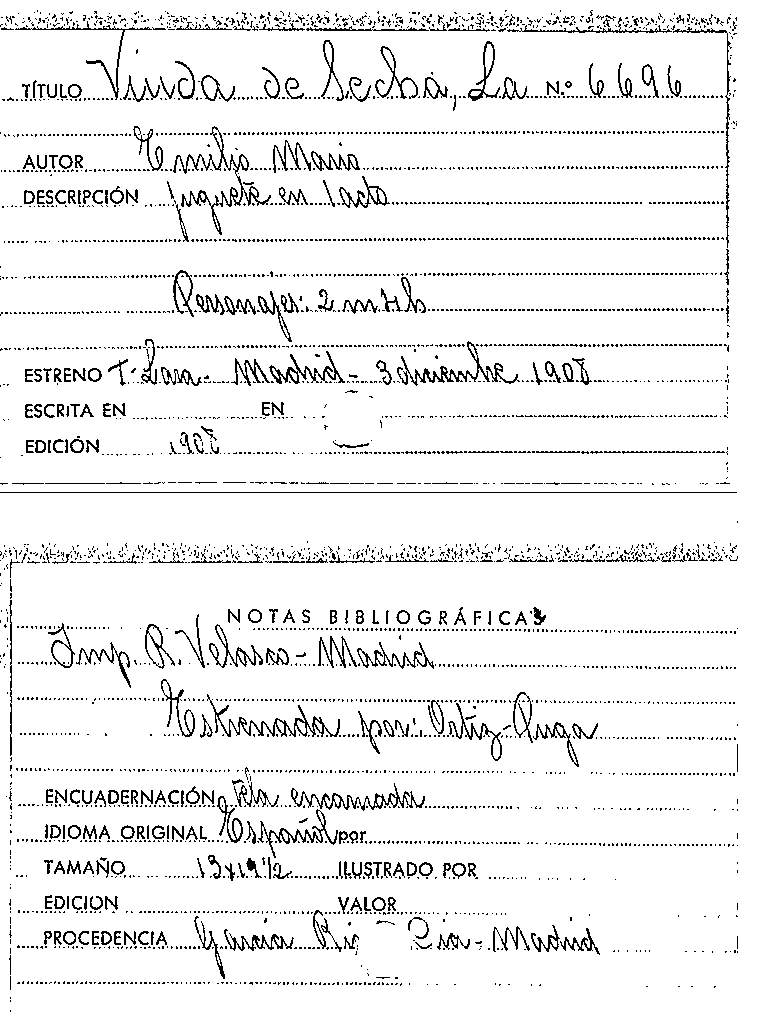 TÍTULO Viuda de lecha, La N.º 6696
AUTOR Emilio Mario
DESCRIPCIÓN juguete en 1 acto
Personajes: 2 m y h
ESTRENO T. Lara - Madrid - 3 diciembre 1908
ESCRITA EN EN
EDICIÓN 1908
NOTAS BIBLIOGRÁFICAS
Imp. R. Velasco - Madrid
Estrenada por: Ortiz-Puga
ENCUADERNACIÓN tela encarnada
IDIOMA ORIGINAL Español por
TAMAÑO 13x19½ ILUSTRADO POR
EDICION VALOR
PROCEDENCIA Garcia Rico - Madrid